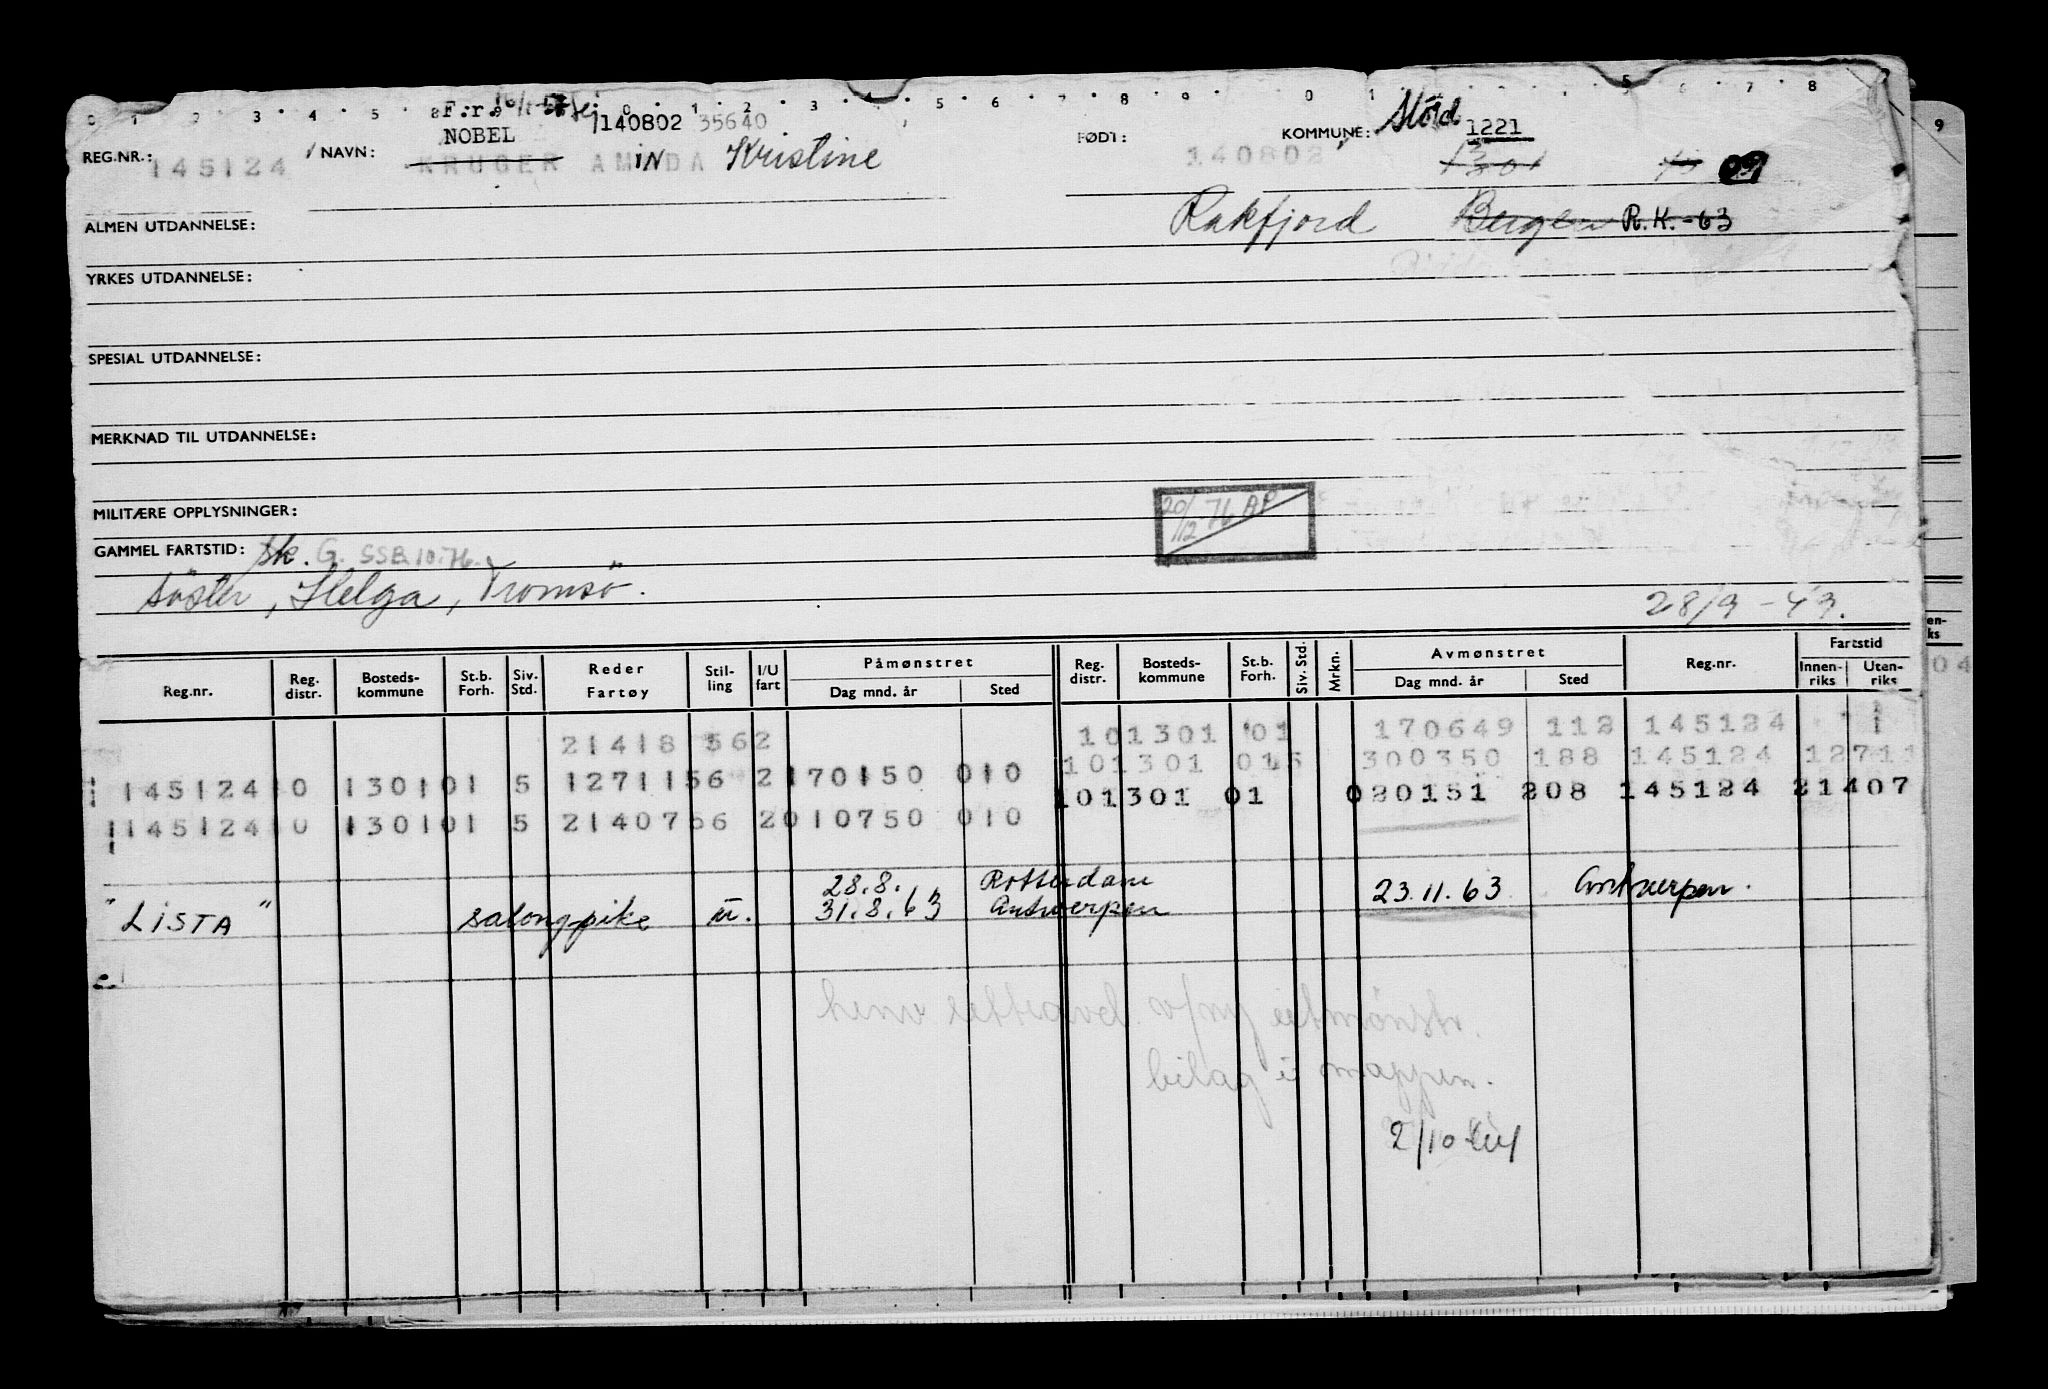 0 1 2 3 4 5 6 7 8 9 0 1 2 3 4 5 6 7 8 9 0 1 5 6 7 8
F.r.
140802 35640
NOBEL
FØDT:
KOMMUNE: Stord 1221
REG.NR.: 145124
NAVN: KRUGER AMINDA Kristine
140802
1301
09
Rakfjord Bergen R.K.-63
ALMEN UTDANNELSE:
YRKES UTDANNELSE:
SPESIAL UTDANNELSE:
MERKNAD TIL UTDANNELSE:
MILITÆRE OPPLYSNINGER:
20/12 76 AP
GAMMEL FARTSTID: sk. G. SSB 10.76.
søster, Helga, Tromsø.
28/9 - 43.
Reg.nr. Reg. distr. Bosteds- kommune St.b. Forh. Siv. Std. Reder Fartøy Stil- ling I/U fart Påmønstret Dag mnd. år Sted Reg. distr. Bosteds- kommune St.b. Forh. Siv. Std. Mrkn. Avmønstret Dag mnd. år Sted Reg.nr. Fartstid Innen- riks Uten- riks
21418 562 101301 01 170649 112 145124
101301 015 300350 188 145124 12711
145124 10 130101 5 1271156 2170150 010
101301 01 020151 208 145124 21407
145124 10 130101 5 2140756 2010750 010
28.8. Rotterdam
"LISTA" salongpike u. 31.8.63 Antwerpen 23.11.63 Antwerpen.
bilag i mappen.
2/10